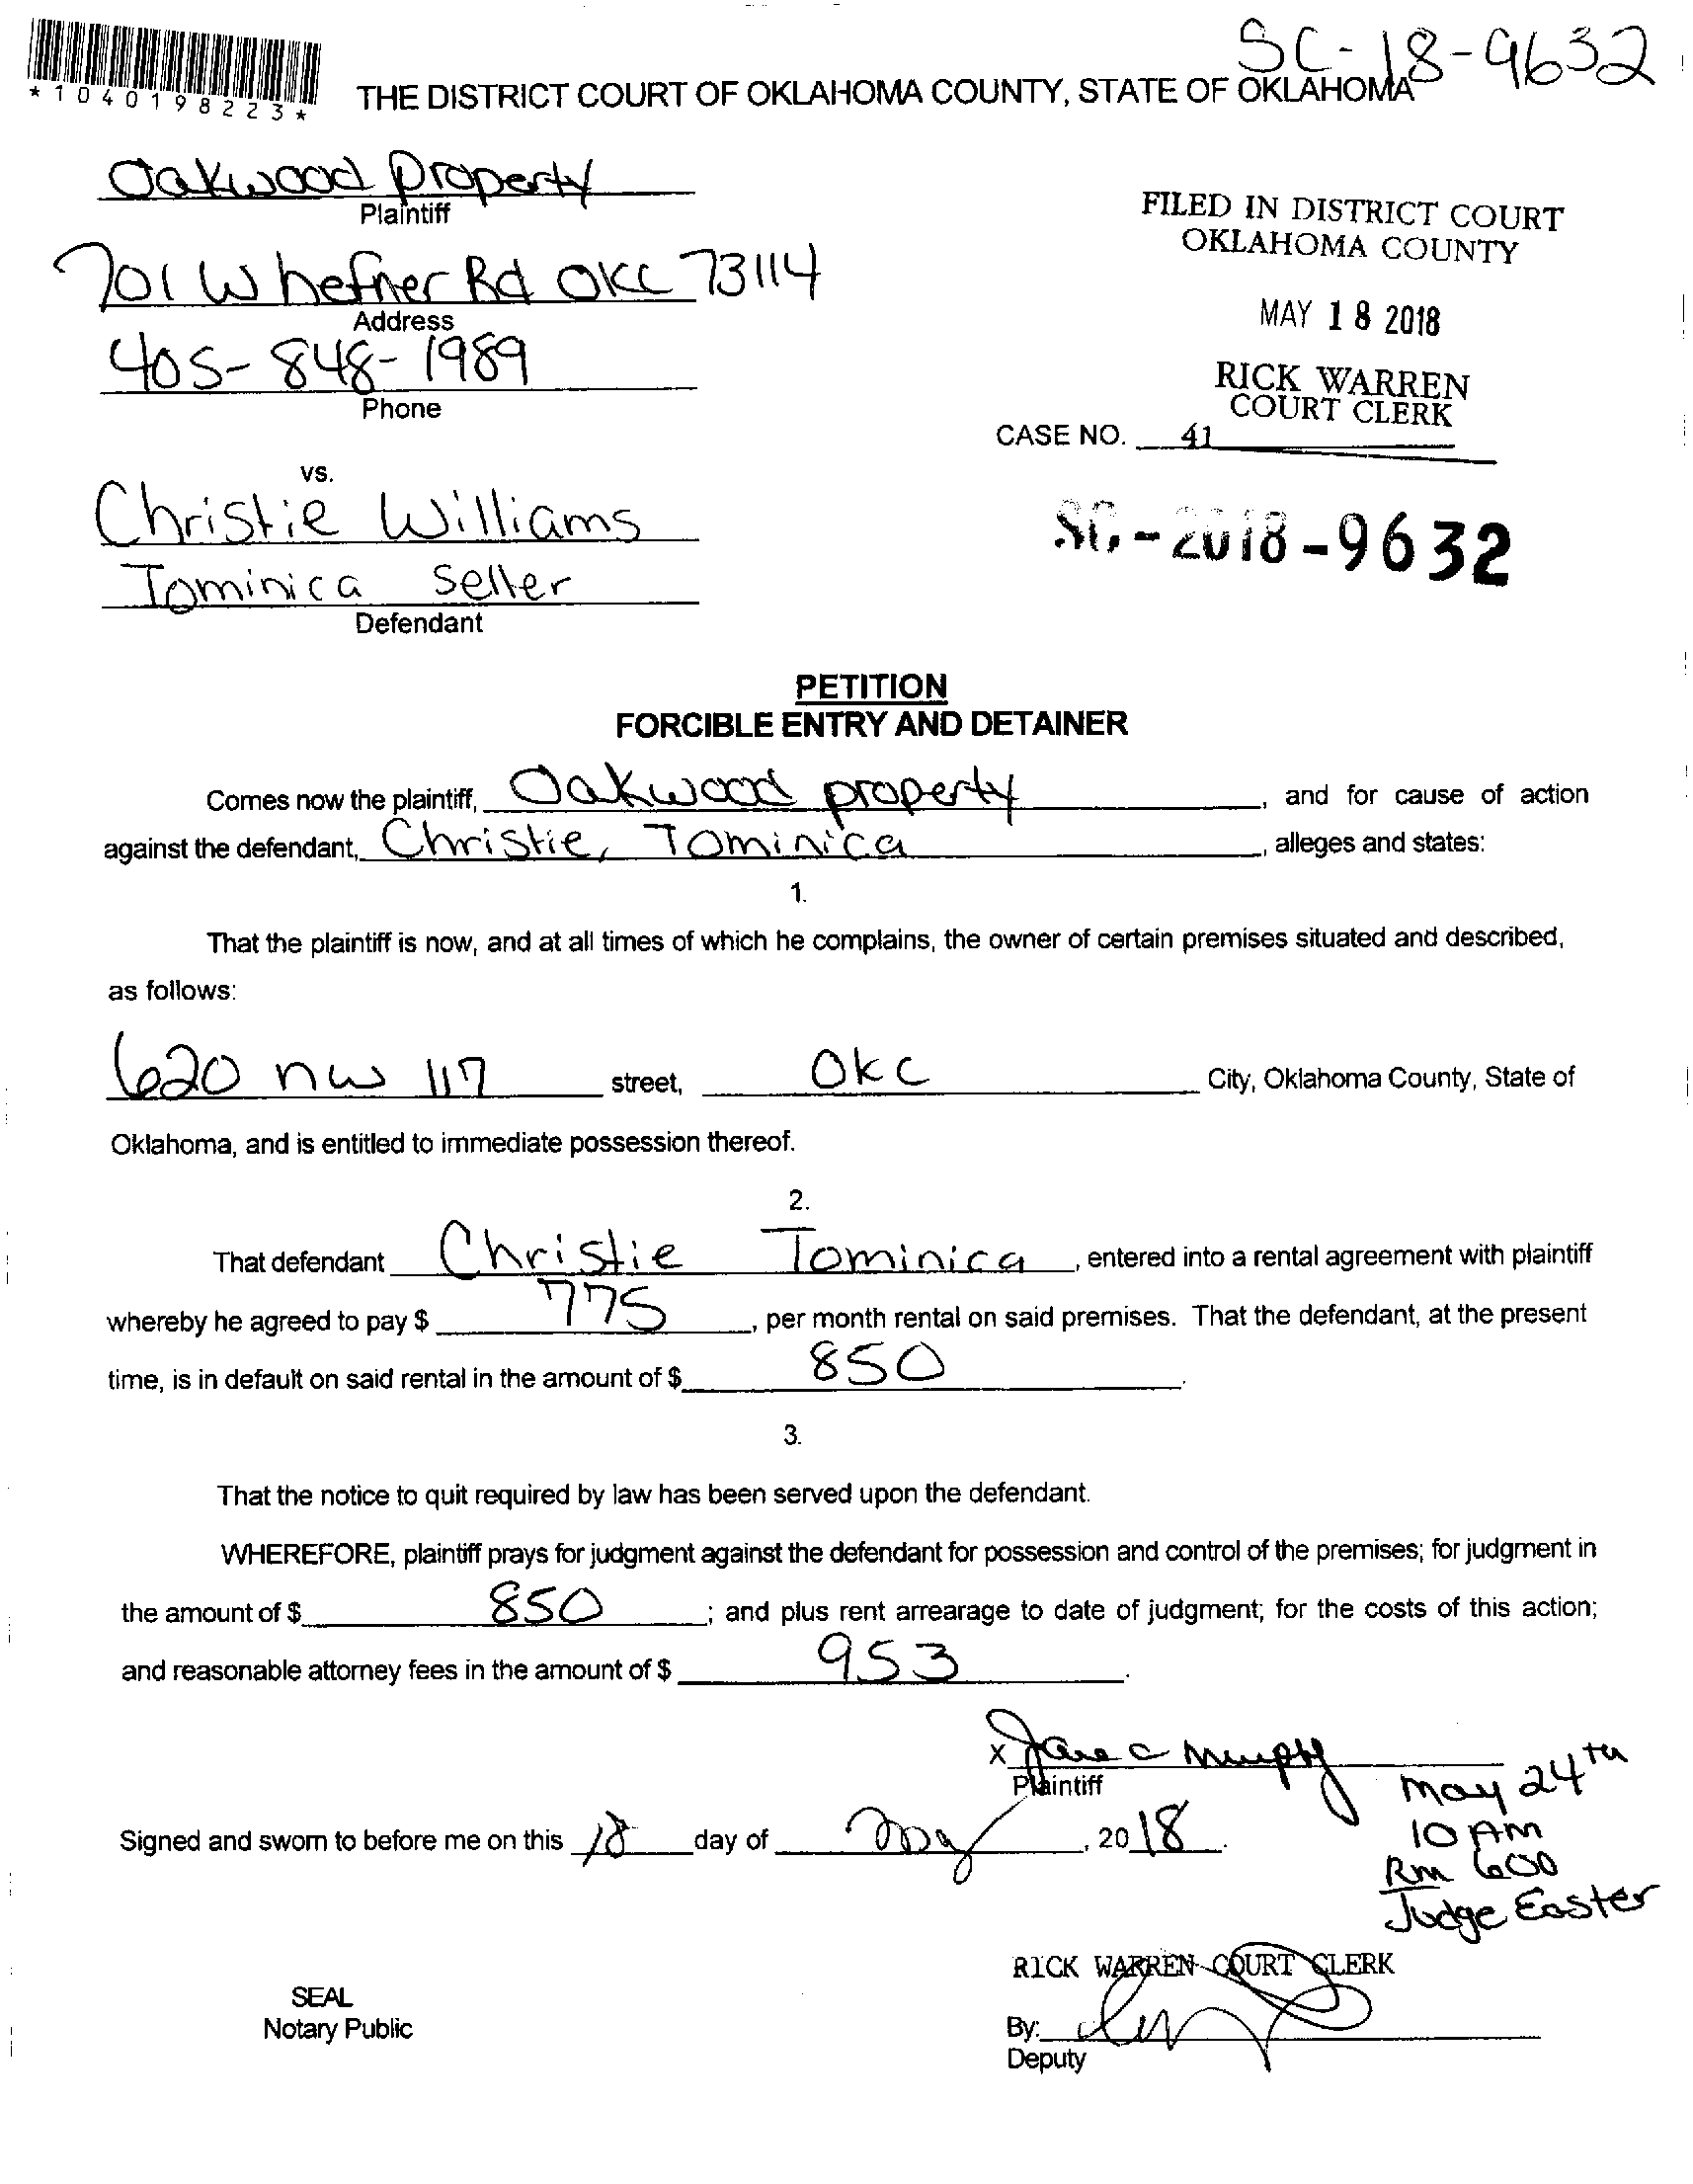 SC-18-9632
*1040198223*
THE DISTRICT COURT OF OKLAHOMA COUNTY, STATE OF OKLAHOMA
Oakwood Property
Plaintiff
701 W hefner Rd OKC 73114
Address
405-848-1989
Phone
FILED IN DISTRICT COURT
OKLAHOMA COUNTY
MAY 18 2018
RICK WARREN
COURT CLERK
CASE NO. 41
vs.
Christie Williams
Tominica Seller
Defendant
SC-2018-9632
PETITION
FORCIBLE ENTRY AND DETAINER
Comes now the plaintiff, Oakwood property, and for cause of action
against the defendant, Christie, Tominica, alleges and states:
1.
That the plaintiff is now, and at all times of which he complains, the owner of certain premises situated and described,
as follows:
620 nw 117 street, OKC City, Oklahoma County, State of
Oklahoma, and is entitled to immediate possession thereof.
2.
That defendant Christie Tominica, entered into a rental agreement with plaintiff
whereby he agreed to pay $ 775, per month rental on said premises. That the defendant, at the present
time, is in default on said rental in the amount of $ 850.
3.
That the notice to quit required by law has been served upon the defendant.
WHEREFORE, plaintiff prays for judgment against the defendant for possession and control of the premises; for judgment in
the amount of $ 850; and plus rent arrearage to date of judgment; for the costs of this action;
and reasonable attorney fees in the amount of $ 953.
x Jane C Murphy
Plaintiff
May 24th
10 AM
Rm 600
Judge Easter
Signed and sworn to before me on this 18 day of May, 2018.
RICK WARREN COURT CLERK
SEAL
Notary Public
By:
Deputy